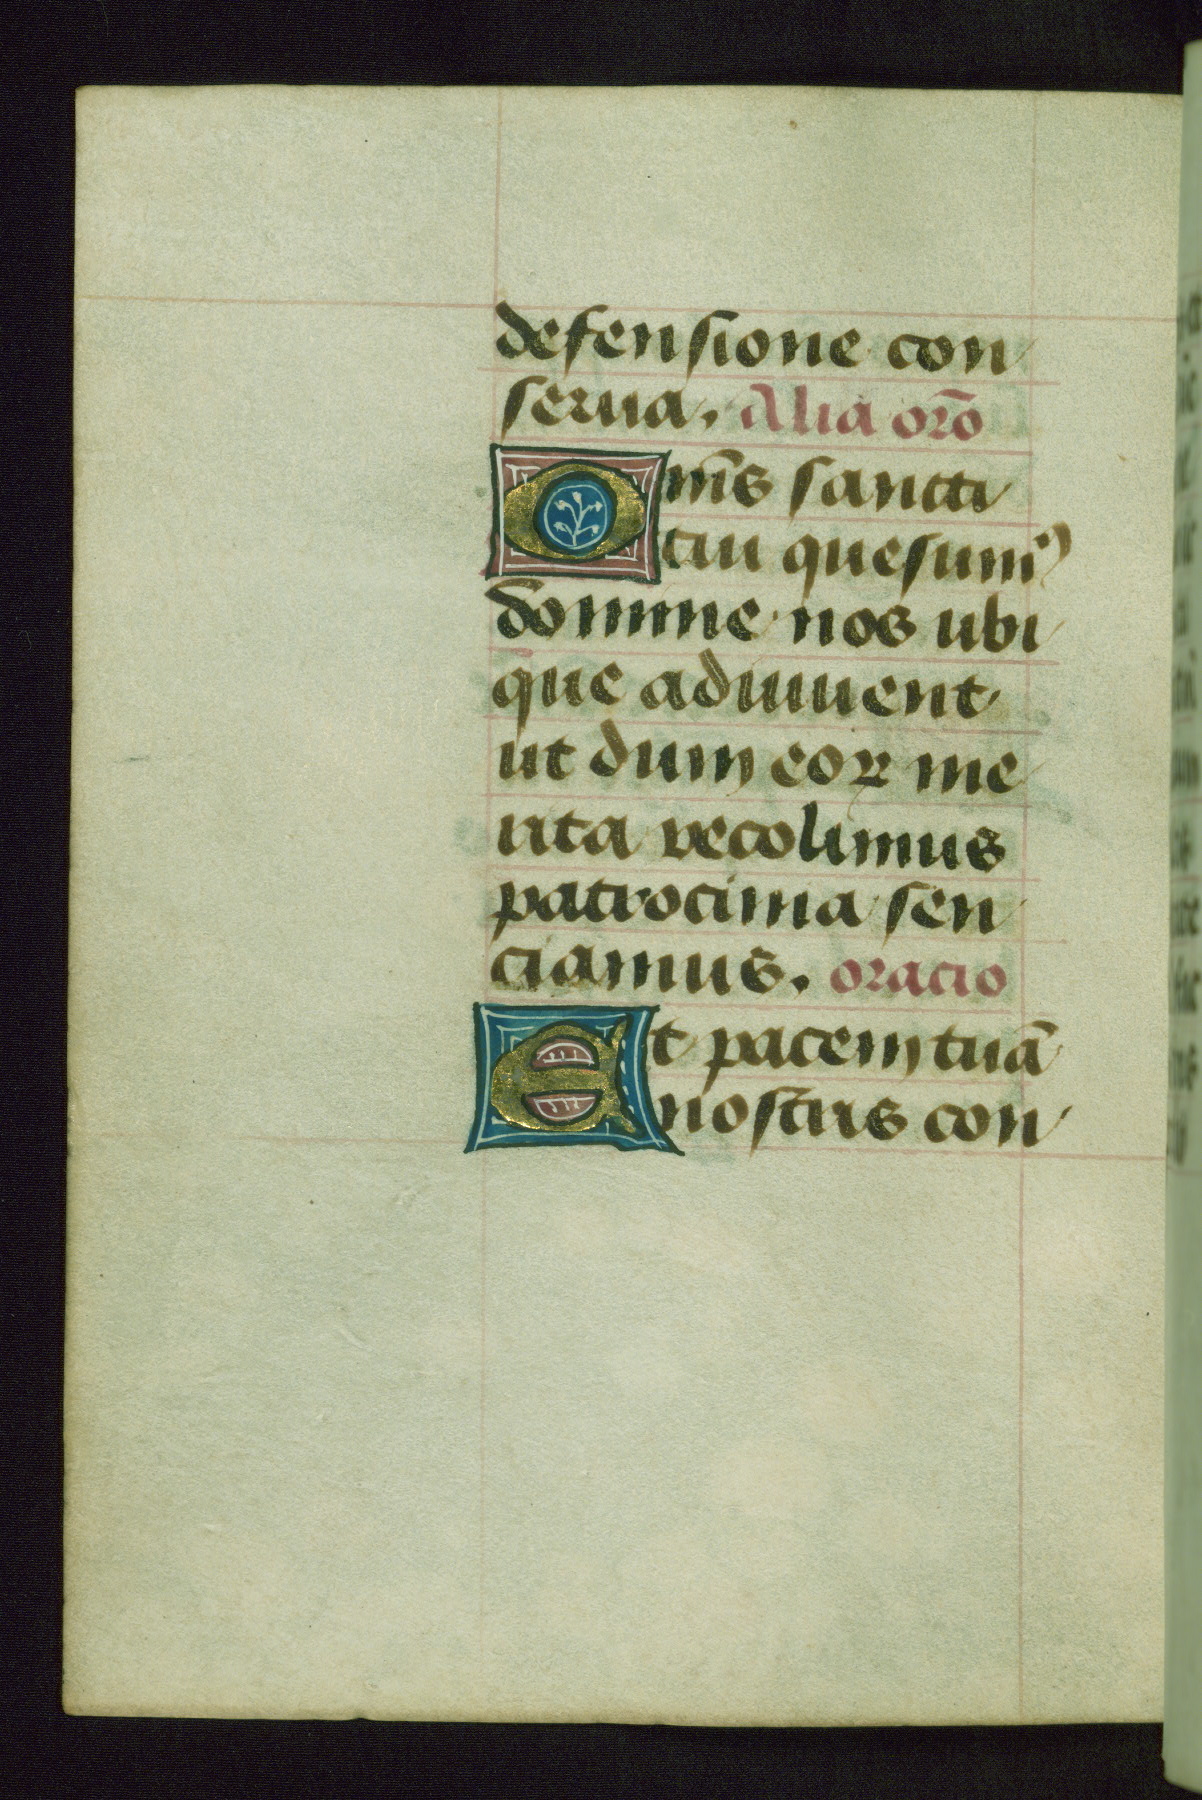 defensione con
serua. Alia orō
Om̄s sancti
tui quesumꝰ
domine nos ubi
que adiuuent
ut dum eoꝝ me
rita recolimus
patrocinia sen
ciamus. oracio
Et pacem tuā
nostris con